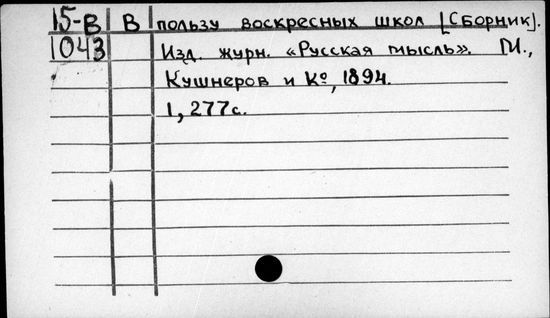 15-В В пользу воскресных школ [Сборник].
1043 Изд. журн. «Русская мысль». М.,
Кушнеров и Ко, 1894.
1, 277с.